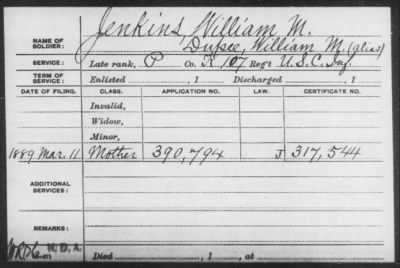 Jenkins, William M.
NAME OF SOLDIER: Dupee, William M. (alias)
SERVICE: Late rank, P Co. K, 107 Reg't U.S.C. Inf.
TERM OF SERVICE: Enlisted , 1 Discharged , 1
DATE OF FILING. CLASS. APPLICATION NO. LAW. CERTIFICATE NO.
Invalid,
Widow,
Minor,
1889 Mar. 11. Mother 390,794 J 317,544
ADDITIONAL SERVICES:
REMARKS:
N.D.A.
Died , 1 , at